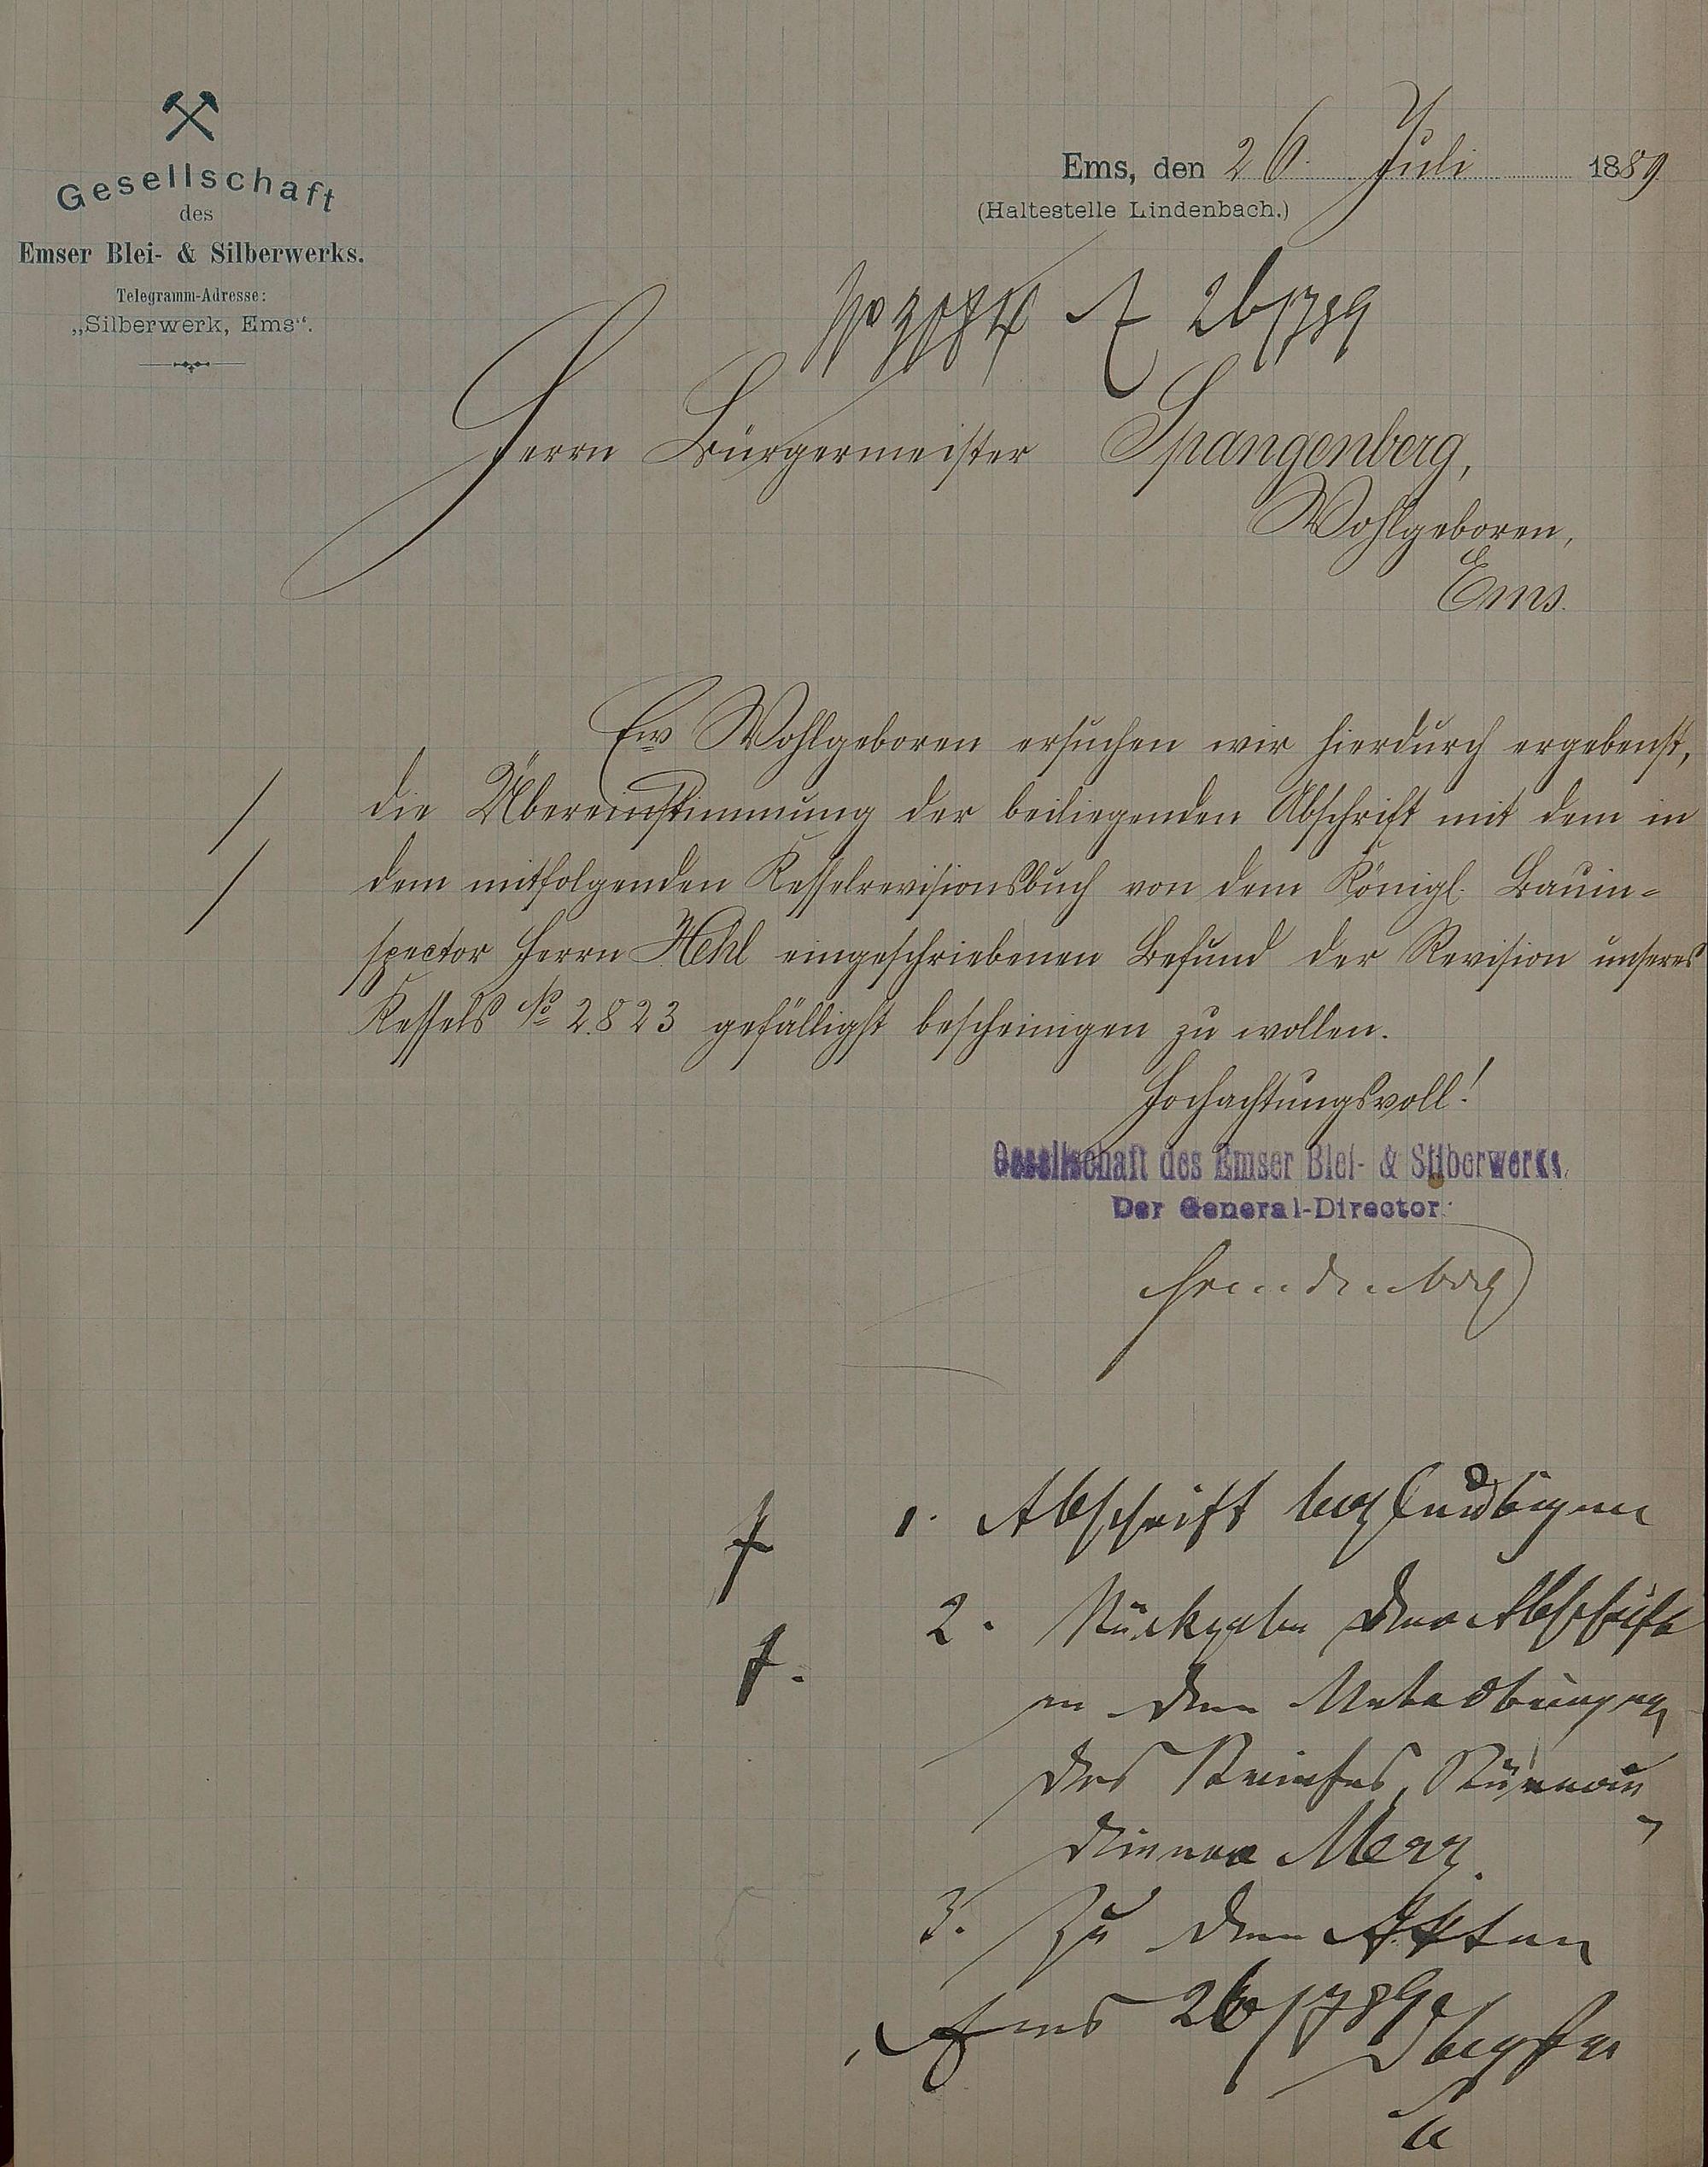 Gesellschaft
des
Emser Blei- & Silberwerks.
Telegramm-Adresse:
„Silberwerk, Ems“.
Ems, den 26. Juli 1889
(Haltestelle Lindenbach.)
26/7 89
Herrn Bürgermeister Spangenberg,
Wohlgeboren,
Ems.
Ew Wohlgeboren ersuchen wir hierdurch ergebenst,
die Übereinstimmung der beiliegenden Abschrift mit dem in
dem mitfolgenden Kesselrevisionsbuch von dem Königl. Bauin-
spector Herrn Hehl eingeschriebenen Befund der Revision unseres
Kessels No 2823 gefälligst bescheinigen zu wollen.
Hochachtungsvoll!
Gesellschaft des Emser Blei- & Silberwerks.
Der General-Director:
Freudenberg
1. Abschrift beglaubigen
2. Rückgabe der Abschrift
an den
des
diener Merz.
3. Zu den Akten
Ems 26/7 89